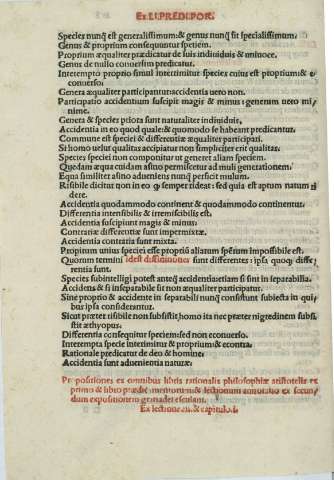 EX LI. PREDI. POR.
Species nunq̃ est generalissimum: & genus nunq̃ fit specialissimum.
Genus & proprium consequuntur speciem.
Proprium æqualiter prædicatur de suis indiuiduis & uniuoce.
Genus de nullo conuersim predicatur.
Interempto proprio simul interimitur species cuius est proprium & e
conuerso.
Genera æqualiter participantur accidentia uero non.
Participatio accidentium suscipit magis & minus: generum uero mi
nime.
Genera & species priora sunt naturaliter indiuiduis.
Accidentia in eo quod quale & quomodo se habeant predicantur.
Commune est speciei & differentiæ æqualiter participari.
Si homo uelut qualitas accipiatur non simpliciter erit qualitas.
Species speciei non componitur ut generet aliam speciem.
Quedam æqua cuidam asino permiscetur ad muli generationem.
Equa similiter asino adueniens nunq̃ perficit mulum.
Risibile dicitur non in eo φ semper rideat: sed quia est aptum natum ri
dere.
Accidentia quodammodo continent & quodammodo continentur.
Differentia intensibilis & irremissibilis est.
Accidentia suscipiunt magis & minus.
Contrariæ differentiæ sunt impermixtæ.
Accidentia contraria sunt mixta.
Proprium unius speciei esse propriũ aliarum speẽrum impossibile est.
Quorum termini idest diffinitiones sunt differentes: ipsa quoq; diffe-
rentia sunt.
Species subintelligi potest anteq̃ accidentia etiam si sint in separabilia.
Accidens & si inseparabile sit non æqualiter participatur.
Sine proprio & accidente in separabili nunq̃ consistunt subiecta in qui
bus ipsa considerantur.
Sicut præter risibile non subsistit homo ita nec præter nigredinem subsi
stit æthyopus.
Differentia consequitur speciem sed non econuerso.
Interempta specie interimitur & proprium & econtra.
Rationale predicatur de deo & homine.
Accidentia sunt aduenientia naturæ.
Propositiones ex omnibus libris rationalis philosophiæ aristotelis ex
primo & libro prædic
dum expositionem
Ex lectione & capitulo. I.